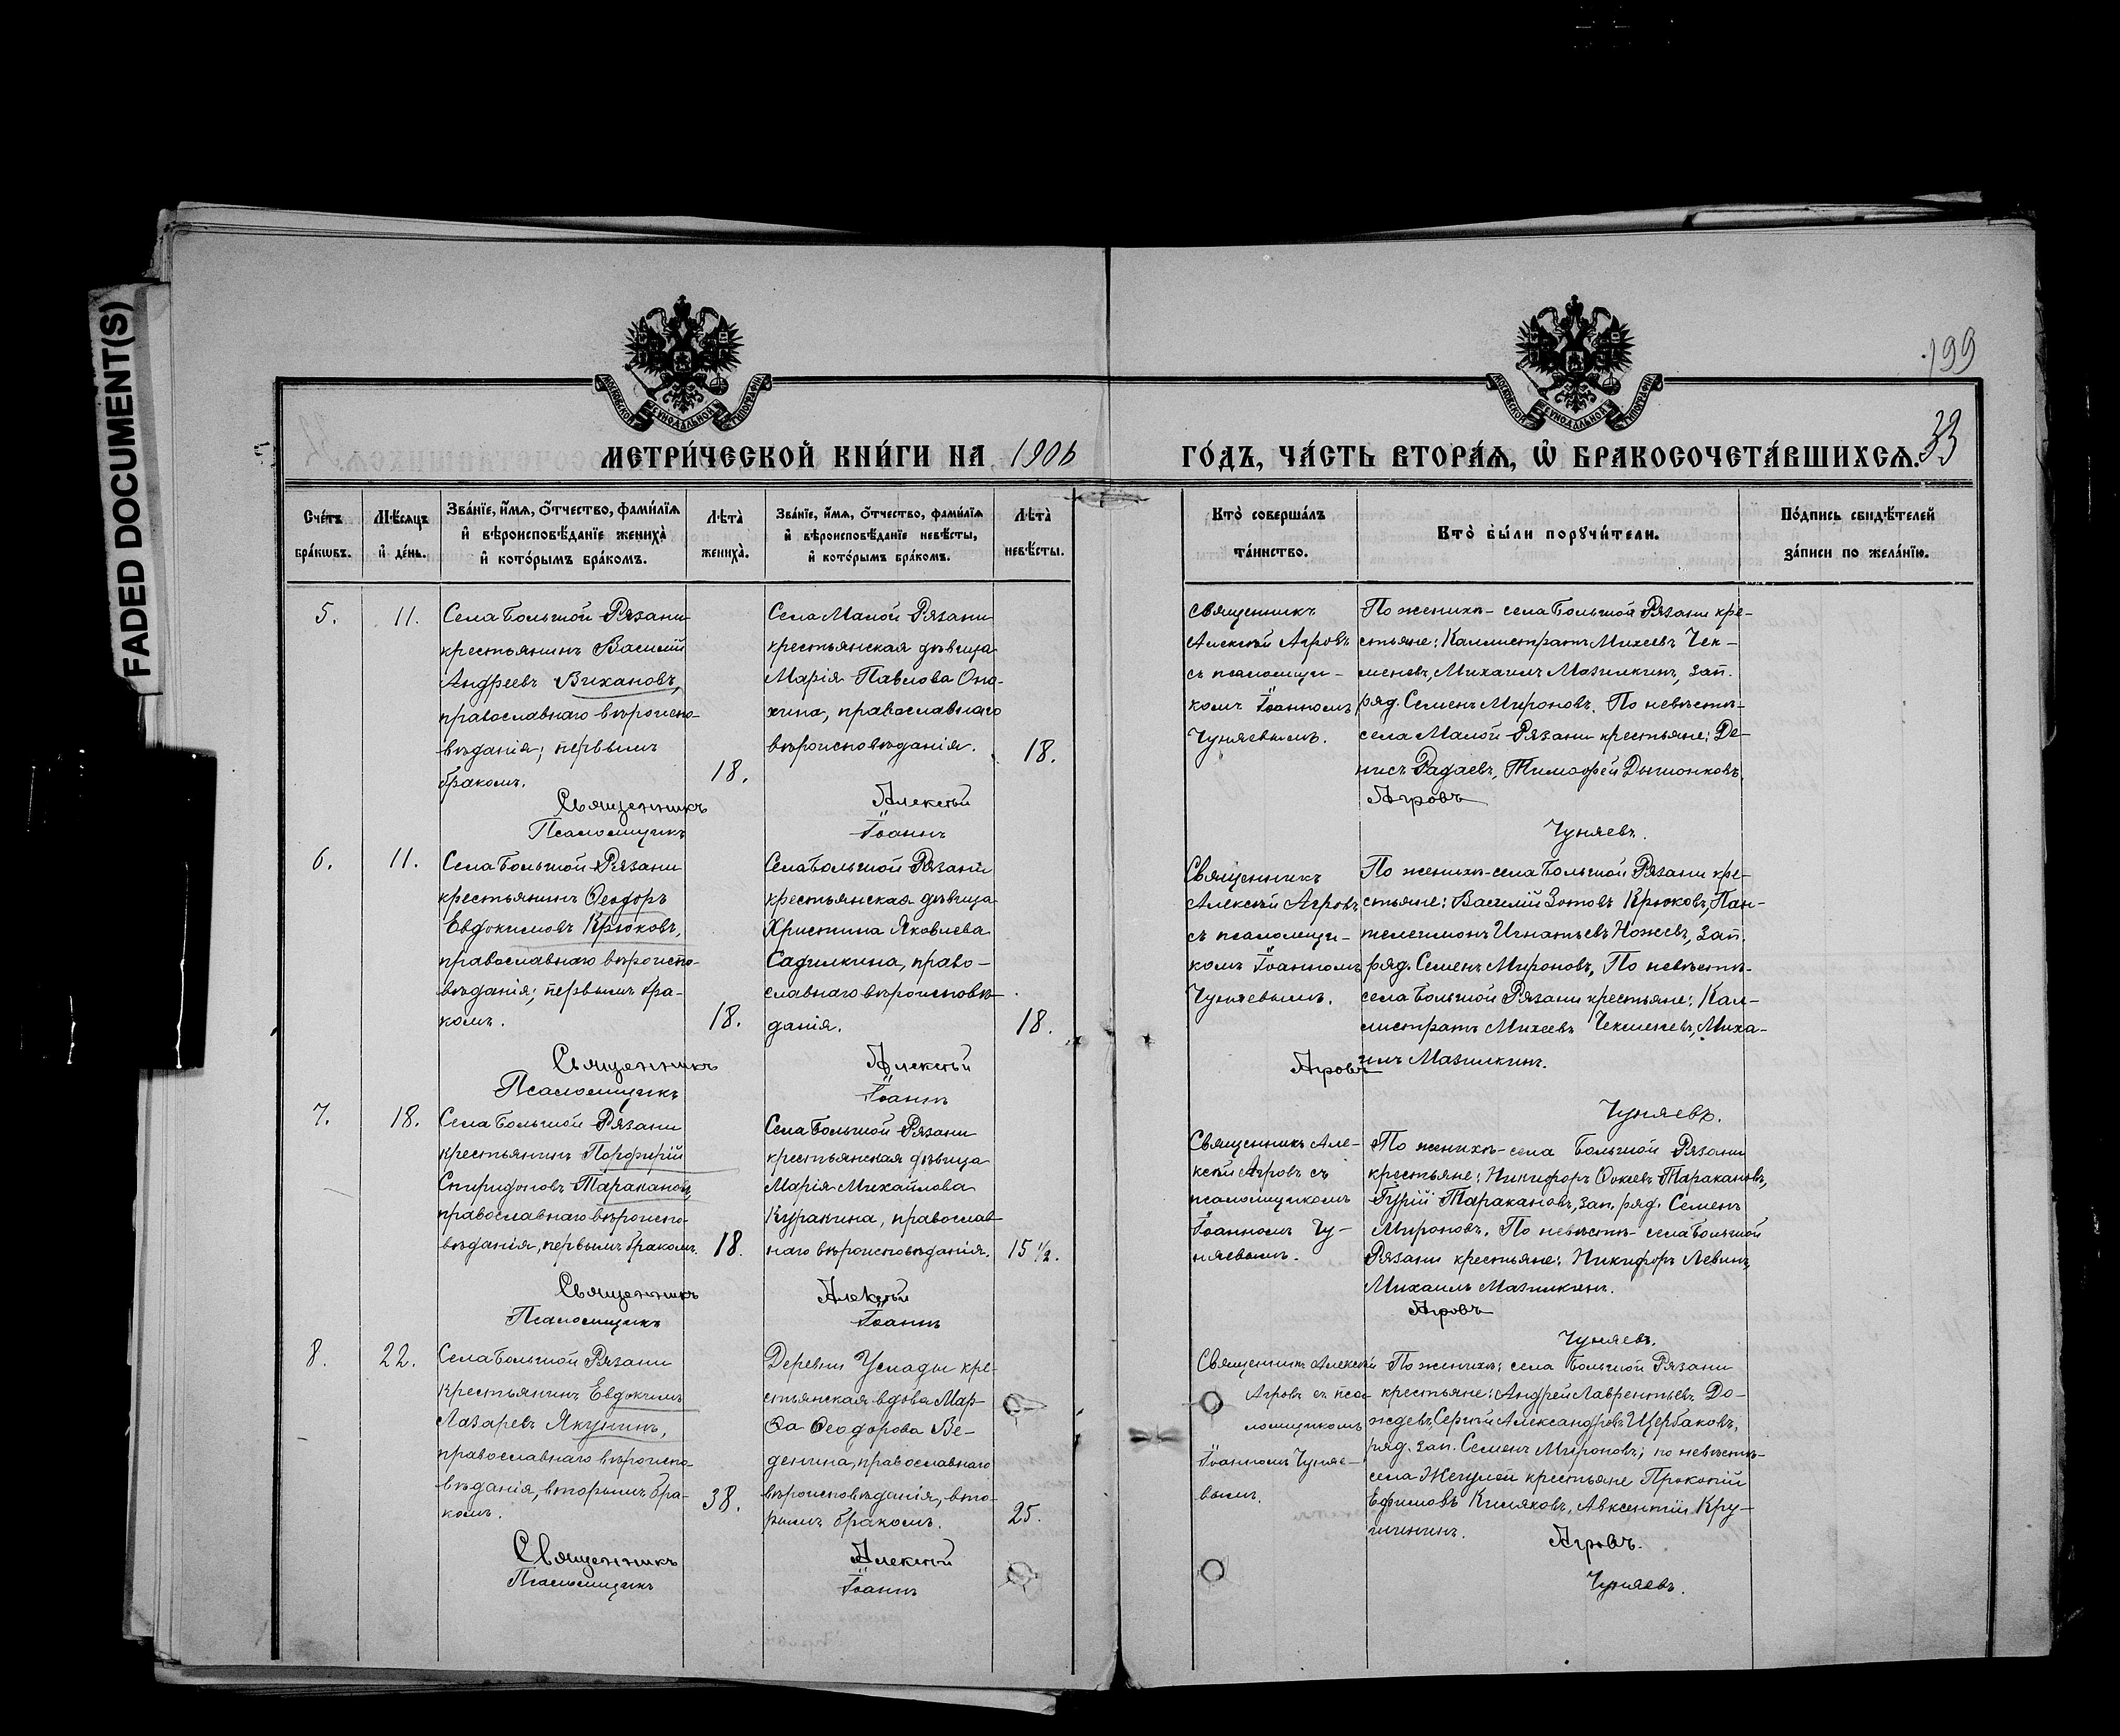 FADED DOCUMENT(S)
199
33
МЕТРИ́ЧЕСКОЙ КНИ́ГИ НА 1906 ГО́ДЪ, ЧА́СТЬ ВТОРА́Я, Ѽ БРАКОСОЧЕТА́ВШИХСЯ.
Сче́тъ бра́кѡвъ.
Мѣ́сяцъ и҆ де́нь.
Зва́нїе, и҆́мя, ѻ҆́тчество, фами́лїя и҆ вѣроисповѣ́данїе жениха̀ и҆ кото́рымъ бра́комъ.
Лѣта̀ жениха̀.
Зва́нїе, и҆́мя, ѻ҆́тчество, фами́лїя и҆ вѣроисповѣ́данїе невѣ́сты, и҆ кото́рымъ бра́комъ.
Лѣта̀ невѣ́сты.
Кто̀ соверша́лъ та́инство.
Кто̀ бы́ли порꙋчи́тели.
По́дпись свидѣ́телей за́писи по жела́нїю.
5.
11.
Села Большой Рязани
крестьянинъ Василій
Андреевъ Вихановъ,
православнаго вѣроиспо-
вѣданія; первымъ
бракомъ.
18.
Села Малой Рязани
крестьянская дѣвица
Марія Павлова Оно-
хина, православнаго
вѣроисповѣданія.
18.
Священникъ
Алексѣй Агровъ
съ псаломщи-
комъ Іоанномъ
Чуняевымъ.
По женихѣ - села Большой Рязани кре-
стьяне: Каллистратъ Михеевъ Чек-
меневъ, Михаилъ Мазилкинъ, зап.
ряд. Семенъ Мироновъ. По невѣстѣ-
села Малой Рязани крестьяне: Де-
нисъ Радаевъ, Тимоѳей Дышонковъ.
Священникъ Алексѣй Агровъ
Псаломщикъ Іоаннъ Чуняевъ.
6.
11.
Села Большой Рязани
крестьянинъ Ѳеодоръ
Евдокимовъ Крюковъ,
православнаго вѣроиспо-
вѣданія; первымъ бра-
комъ.
18.
Села Большой Рязани
крестьянская дѣвица
Христина Яковлева
Садилкина, право-
славнаго вѣроисповѣ-
данія.
18.
Священникъ
Алексѣй Агровъ
съ псаломщи-
комъ Іоанномъ
Чуняевымъ.
По женихѣ - села Большой Рязани кре-
стьяне: Василій Зотовъ Крюковъ, Пан-
телеимонъ Игнатьевъ Ножевъ, зап.
ряд. Семенъ Мироновъ. По невѣстѣ-
села Большой Рязани крестьяне: Кал-
листратъ Михеевъ Чекменевъ, Миха-
илъ Мазилкинъ.
Священникъ Алексѣй Агровъ
Псаломщикъ Іоаннъ Чуняевъ.
7.
18.
Села Большой Рязани
крестьянинъ Порфирій
Спиридоновъ Таракановъ,
православнаго вѣроиспо-
вѣданія, первымъ бракомъ.
18.
Села Большой Рязани
крестьянская дѣвица
Марія Михайлова
Куракина, православ-
наго вѣроисповѣданія.
15 1/2.
Священникъ Але-
ксѣй Агровъ съ
псаломщикомъ
Іоанномъ Чу-
няевымъ.
По женихѣ - села Большой Рязани
крестьяне: Никифоръ Ѳокеевъ Таракановъ,
Гурій Таракановъ, зап. ряд. Семенъ
Мироновъ. По невѣстѣ - села Большой
Рязани крестьяне: Никифоръ Левинъ,
Михаилъ Мазилкинъ.
Священникъ Алексѣй Агровъ
Псаломщикъ Іоаннъ Чуняевъ.
8.
22.
Села Большой Рязани
крестьянинъ Евдокимъ
Лазаревъ Якунинъ,
православнаго вѣроиспо-
вѣданія, вторымъ бра-
комъ.
38.
Деревни Услады кре-
стьянская вдова Мар-
ѳа Ѳеодорова Ве-
денина, православнаго
вѣроисповѣданія, вто-
рымъ бракомъ.
25.
Священникъ Алексѣй
Агровъ съ пса-
ломщикомъ
Іоанномъ Чуняе-
вымъ.
По женихѣ: села Большой Рязани
крестьяне: Андрей Лаврентьевъ До-
ждевъ, Сергѣй Александровъ Щербаковъ,
ряд. зап. Семенъ Мироновъ; по невѣстѣ-
села Жегулей крестьяне Прокопій
Ефимовъ Кисляковъ, Авксентій Кру-
Священникъ Алексѣй Агровъ.
Псаломщикъ Іоаннъ Чуняевъ.